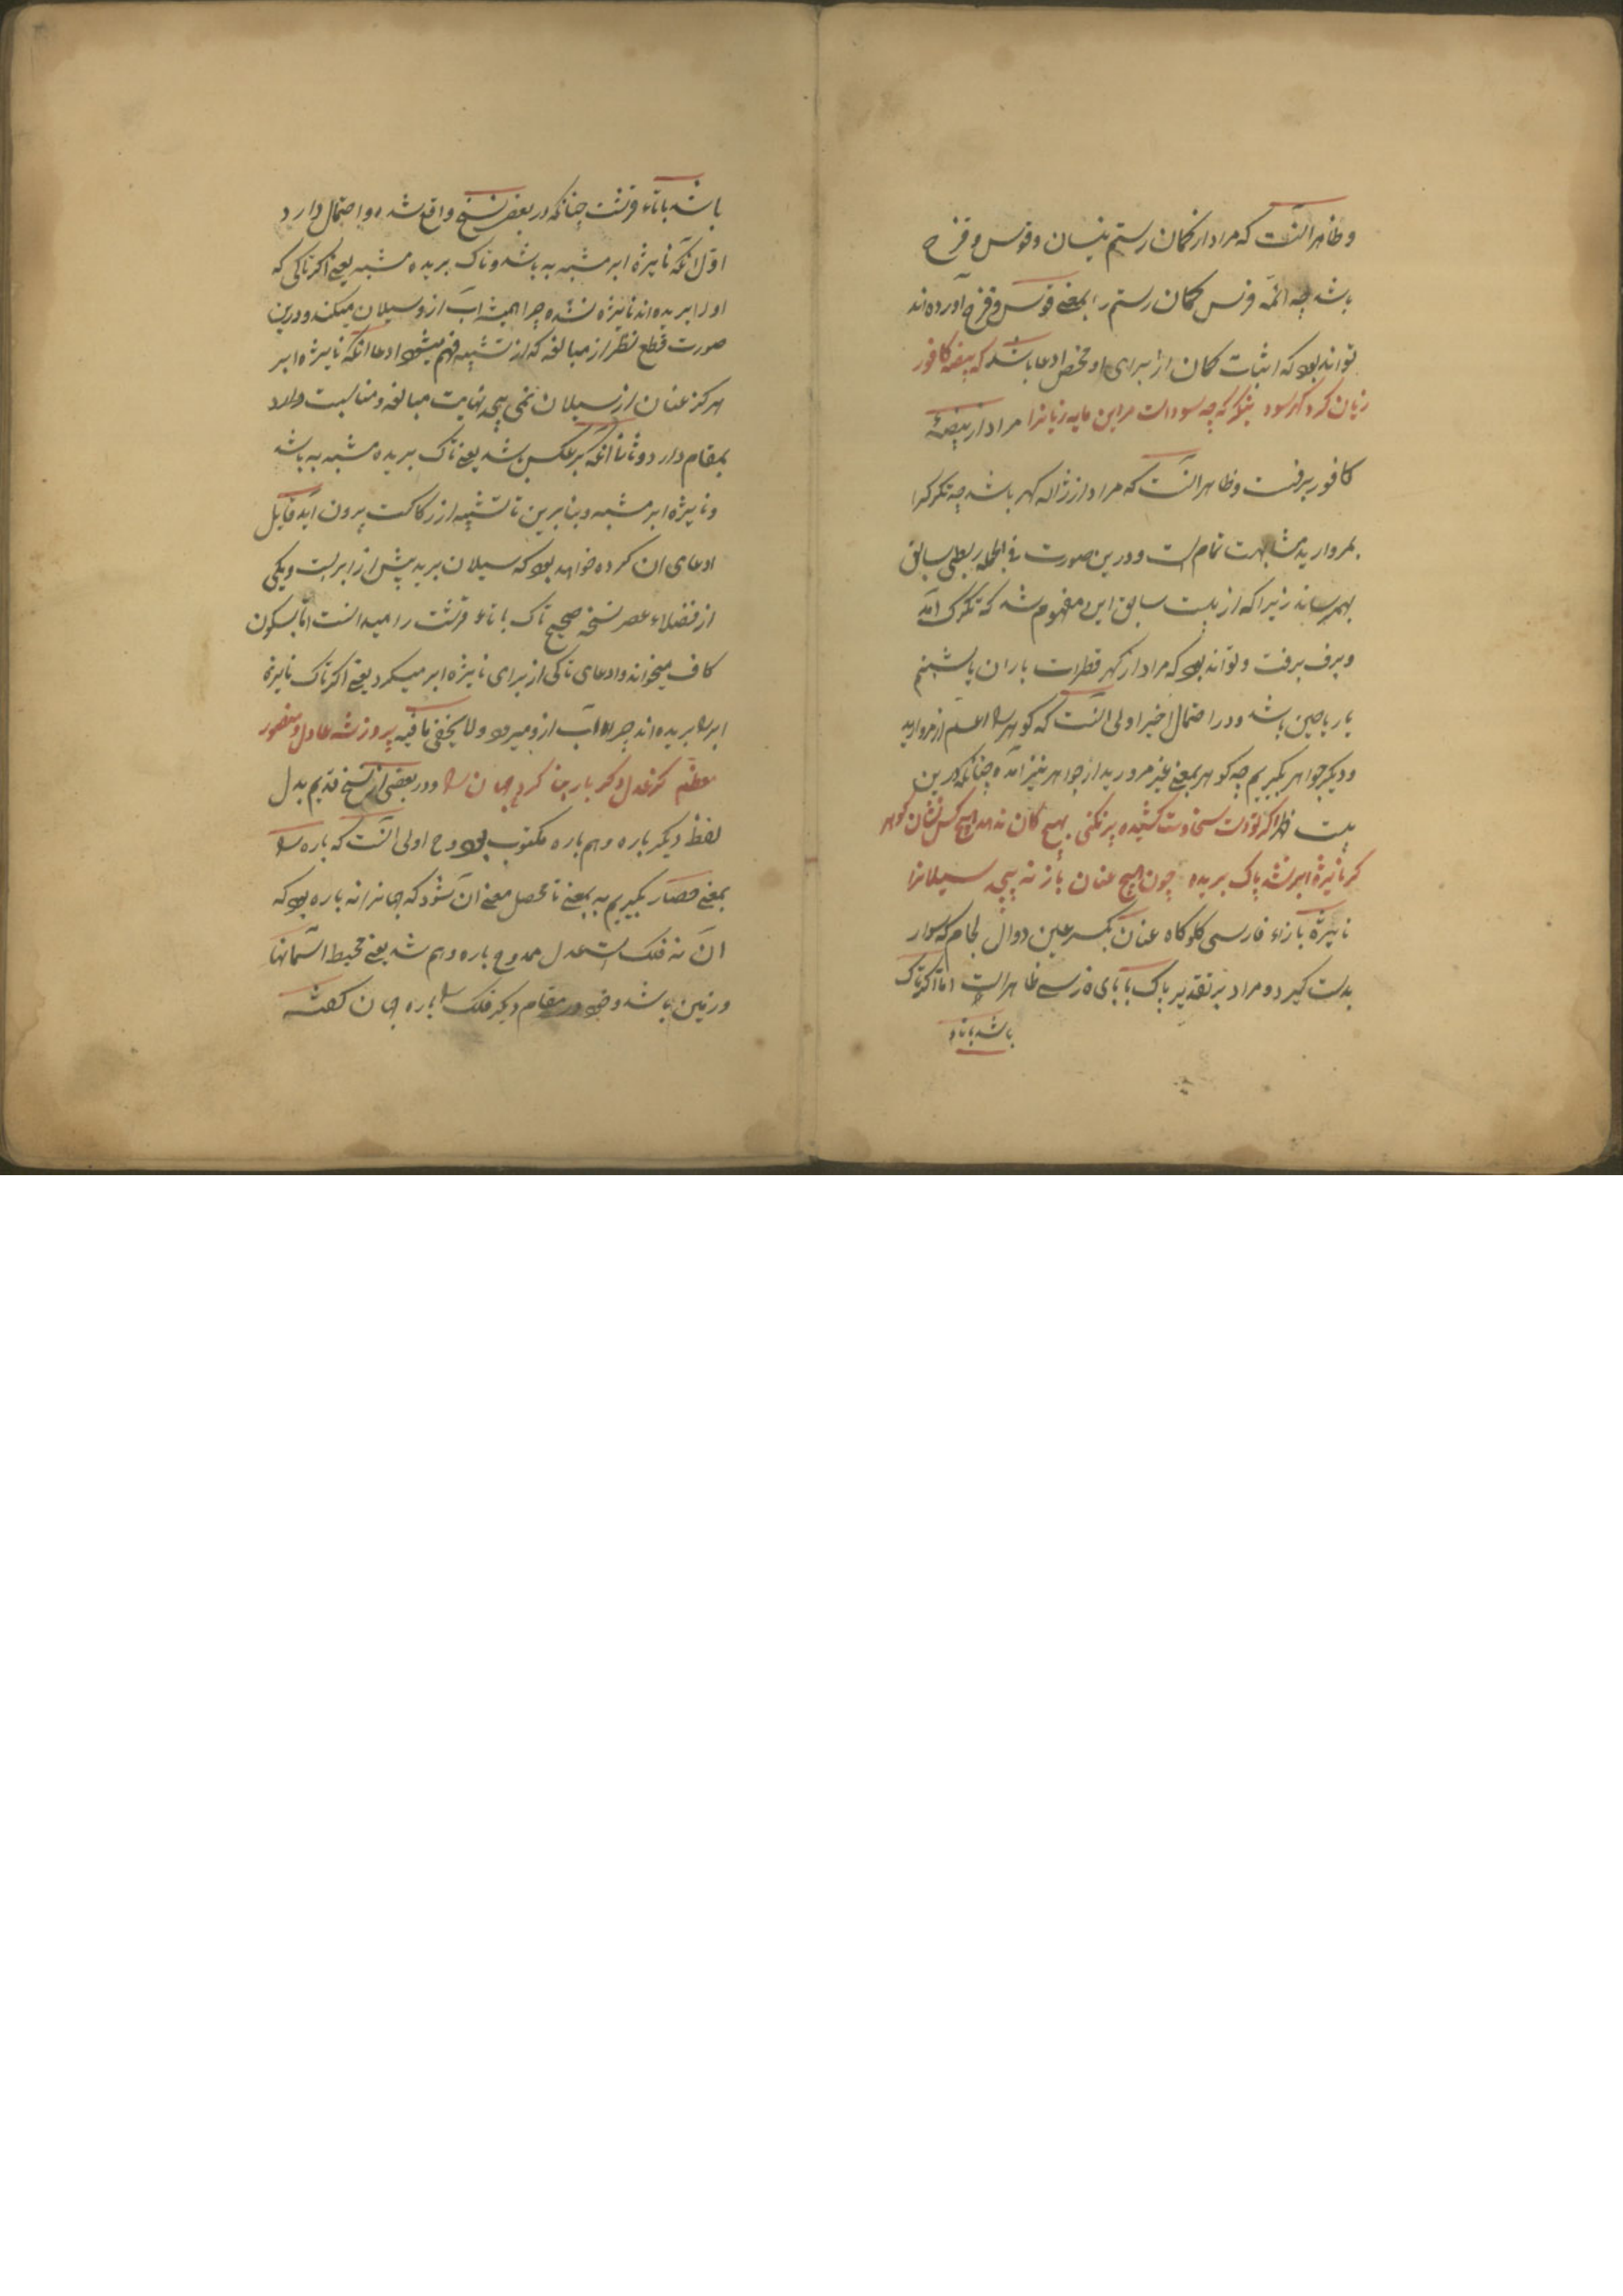 و ظاهر آنست که مراد از کمان رستم نیسان و قوس و قزح
باشد چه ائمه فرس کمان رستم را بمعنی قوس و قزح آورده‌اند
تواند بود که اثبات کمان از برای او محض ادعا باشد که بیضه کافور
زیان کرد و گهر سود بنگر که چه سودست مر این مایه زیانرا مراد از بیضهٔ
کافور برفست و ظاهر آنست که مراد از ژاله گهر باشد چه تگرگ را
بمروارید مشابهت تمام است و درین صورت فی الجمله ربطی بسابق
بهم رساند زیرا که از بیت سابق این مفهوم شد که تگرگ آمد
و برف برفت و تواند بود که مراد از گهر قطرات باران یا شبنم
یا ریاحین باشد و در احتمال اخیر اولی آنست که گوهر را اعم از مروارید
و دیگر جواهر بگیریم چه گوهر بمعنی غیر مروارید از جواهر نیز آمده چنانکه درین
بیت اگر تو دست سخاوت کشیده پر نکنی بهیچ کان ندهد هیچ کس نشان گوهر
گر نایژهٔ ابر نشد پاک بریده چون هیچ عنان باز نه پیچد سیلانرا
نایژه بازاء فارسی گلوگاه عنان بکسر عین دوال لجام که سوار
بدست گیرد و مراد بر تقدیر پاک با بای فارسی ظاهر است اما اگر تاک
باشد بتاء
باشد بتاء قرشت چنانکه در بعض نسخ واقع شده دو احتمال دارد
اول آنکه نایژه ابر مشبه به باشد و تاک بریده مشبه یعنی اگر تاکی که
او را بریده‌اند نایژه نشده چرا همیشه آب ازو سیلان میکند و درین
صورت قطع نظر از مبالغه که از تشبیه فهم میشود ادعا آنکه نایژه ابر
هرگز عنان از سیلان نمی پیچد نهایت مبالغه و مناسبت دارد
بمقام دارد و ثانیا آنکه برعکس باشد یعنی تاک بریده مشبه به باشد
و نایژه ابر مشبه و بنابرین تا تشبیه از رکاکت بیرون آید قایل
ادعای آن کرده خواهد بود که سیلان برید پیش از ابر است و یکی
از فضلاء عصر نسخه صحیح تاک با تاء قرشت را میدانست اما بسکون
کاف میخواند و ادعای تاکی از برای نایژه ابر میکرد یعنی اگر تاک نایژه
ابر را بریده‌اند چرا آب ازو میرود و لا یخفی ما فیه پیروز شه عادل و منصور
معظم کز عدل دگر باره بنا کرد جهان را و در بعضی از نسخ قدیم بدل
لفظ دیگر باره وهم باره مکتوب بود و ح اولی آنست که باره را
بمعنی حصار بگیریم نه بمعنی تا محصل معنی آن شود که جهانرا نه باره بود که
آن نه فلک است عدل ممدوح باره دهم شد یعنی محیط آسمانها
و زمین باشد و خود در مقام دیگر فلک را باره جهان گفته